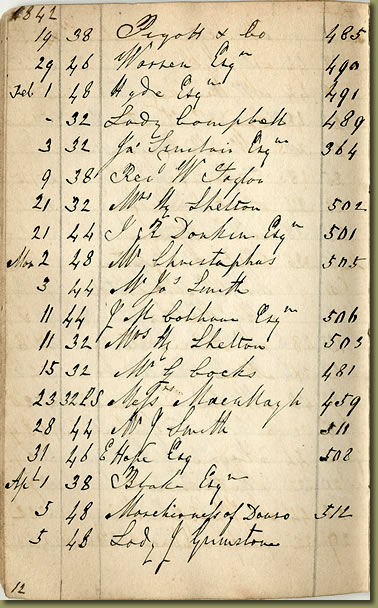 1842
19 38 Pigott & Co 485
29 46 Warren Esqre 490
Feb 1 48 Hyde Esqre 491
- 32 Lady Campbell 489
3 32 Jas Sinclair Esqre 364
9 38 Revd W Taylor
21 32 Mrs Hy Shelton 502
21 44 J R Donkin Esqre 501
Mar 2 48 Mr Christophus 505
3 44 Mr Jas Smith
11 44 J M Colhoun Esqre 506
11 32 Mrs Hy Shelton 503
15 32 Mr G Cocks 481
23 32 LS Messrs Macullagh 459
28 44 Mr J Smith 511
31 46 E Hoke Esq 508
Apl 1 38 Blake Esqre
5 48 Marchioness of Douro 512
5 48 Lady J Grimstone
12